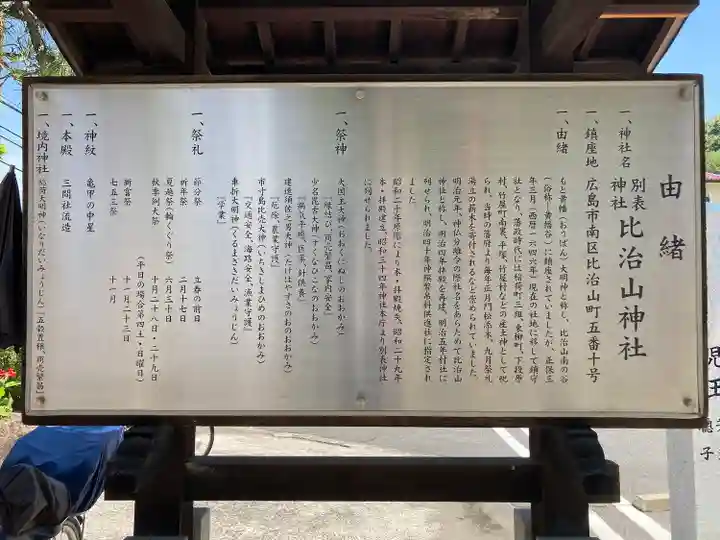 由緒
一、神社名 別表神社 比治山神社
一、鎮座地 広島市南区比治山町五番十号
一、由緒
もと黄幡（おうばん）大明神と称し、比治山南の谷
（俗称・黄幡谷）に鎮座されていましたが、正保三
年三月（西暦一六四六年）現在の社地に移して鎮守
社となり、藩政時代には稲荷町三組、東柳町、下段原
村、竹屋町南裏、平塚、竹屋村などの産土神として祝
られ、当時の藩府より毎年正月門松添木、九月祭礼
湯立の薪木を寄付されるなど崇められていました。
明治元年、神仏分離令の際社名をあらためて比治山
神社と称し、明治四年拝殿を再建、明治五年村社に
列せられ、明治四十年神饌幣帛料供進社に指定され
ました。
昭和二十年原爆により本・拝殿焼失、昭和二十九年
本・拝殿建立、昭和三十四年神社本庁より別表神社
に列せられました。
一、祭神
大国主大神（おおくにぬしのおおかみ）
『縁結び、商売繁昌、家内安全』
少名毘古大神（すくなひこなのおおかみ）
『病気平癒、医薬、針供養』
建速須佐之男大神（たけはやすさのおのおおかみ）
『厄除、農業守護』
市寸島比売大神（いちきしまひめのおおかみ）
『交通安全、海路安全、漁業守護』
車折大明神（くるまさきだいみょうじん）
『学業』
一、祭礼
節分祭 立春の前日
祈年祭 二月十七日
夏越祭（輪くぐり祭） 六月三十日
秋季例大祭 十月二十八日・二十九日
（平日の場合第四土・日曜日）
新嘗祭 十一月二十三日
七五三祭 十一月
一、神紋 亀甲の中星
一、本殿 三間社流造
一、境内神社 稲荷大明神（いなりだいみょうじん）『五穀豊穣、商売繁昌』
子